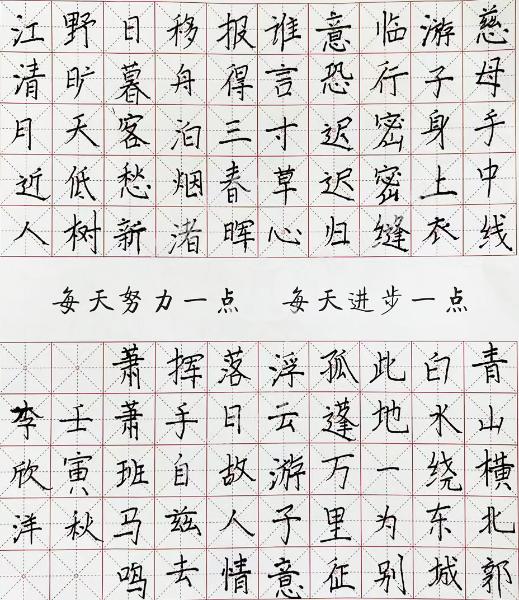 慈母手中线
游子身上衣
临行密密缝
意恐迟迟归
谁言寸草心
报得三春晖
移舟泊烟渚
日暮客愁新
野旷天低树
江清月近人
每天努力一点 每天进步一点
青山横北郭
白水绕东城
此地一为别
孤蓬万里征
浮云游子意
落日故人情
挥手自兹去
萧萧班马鸣
壬寅秋
李欣洋